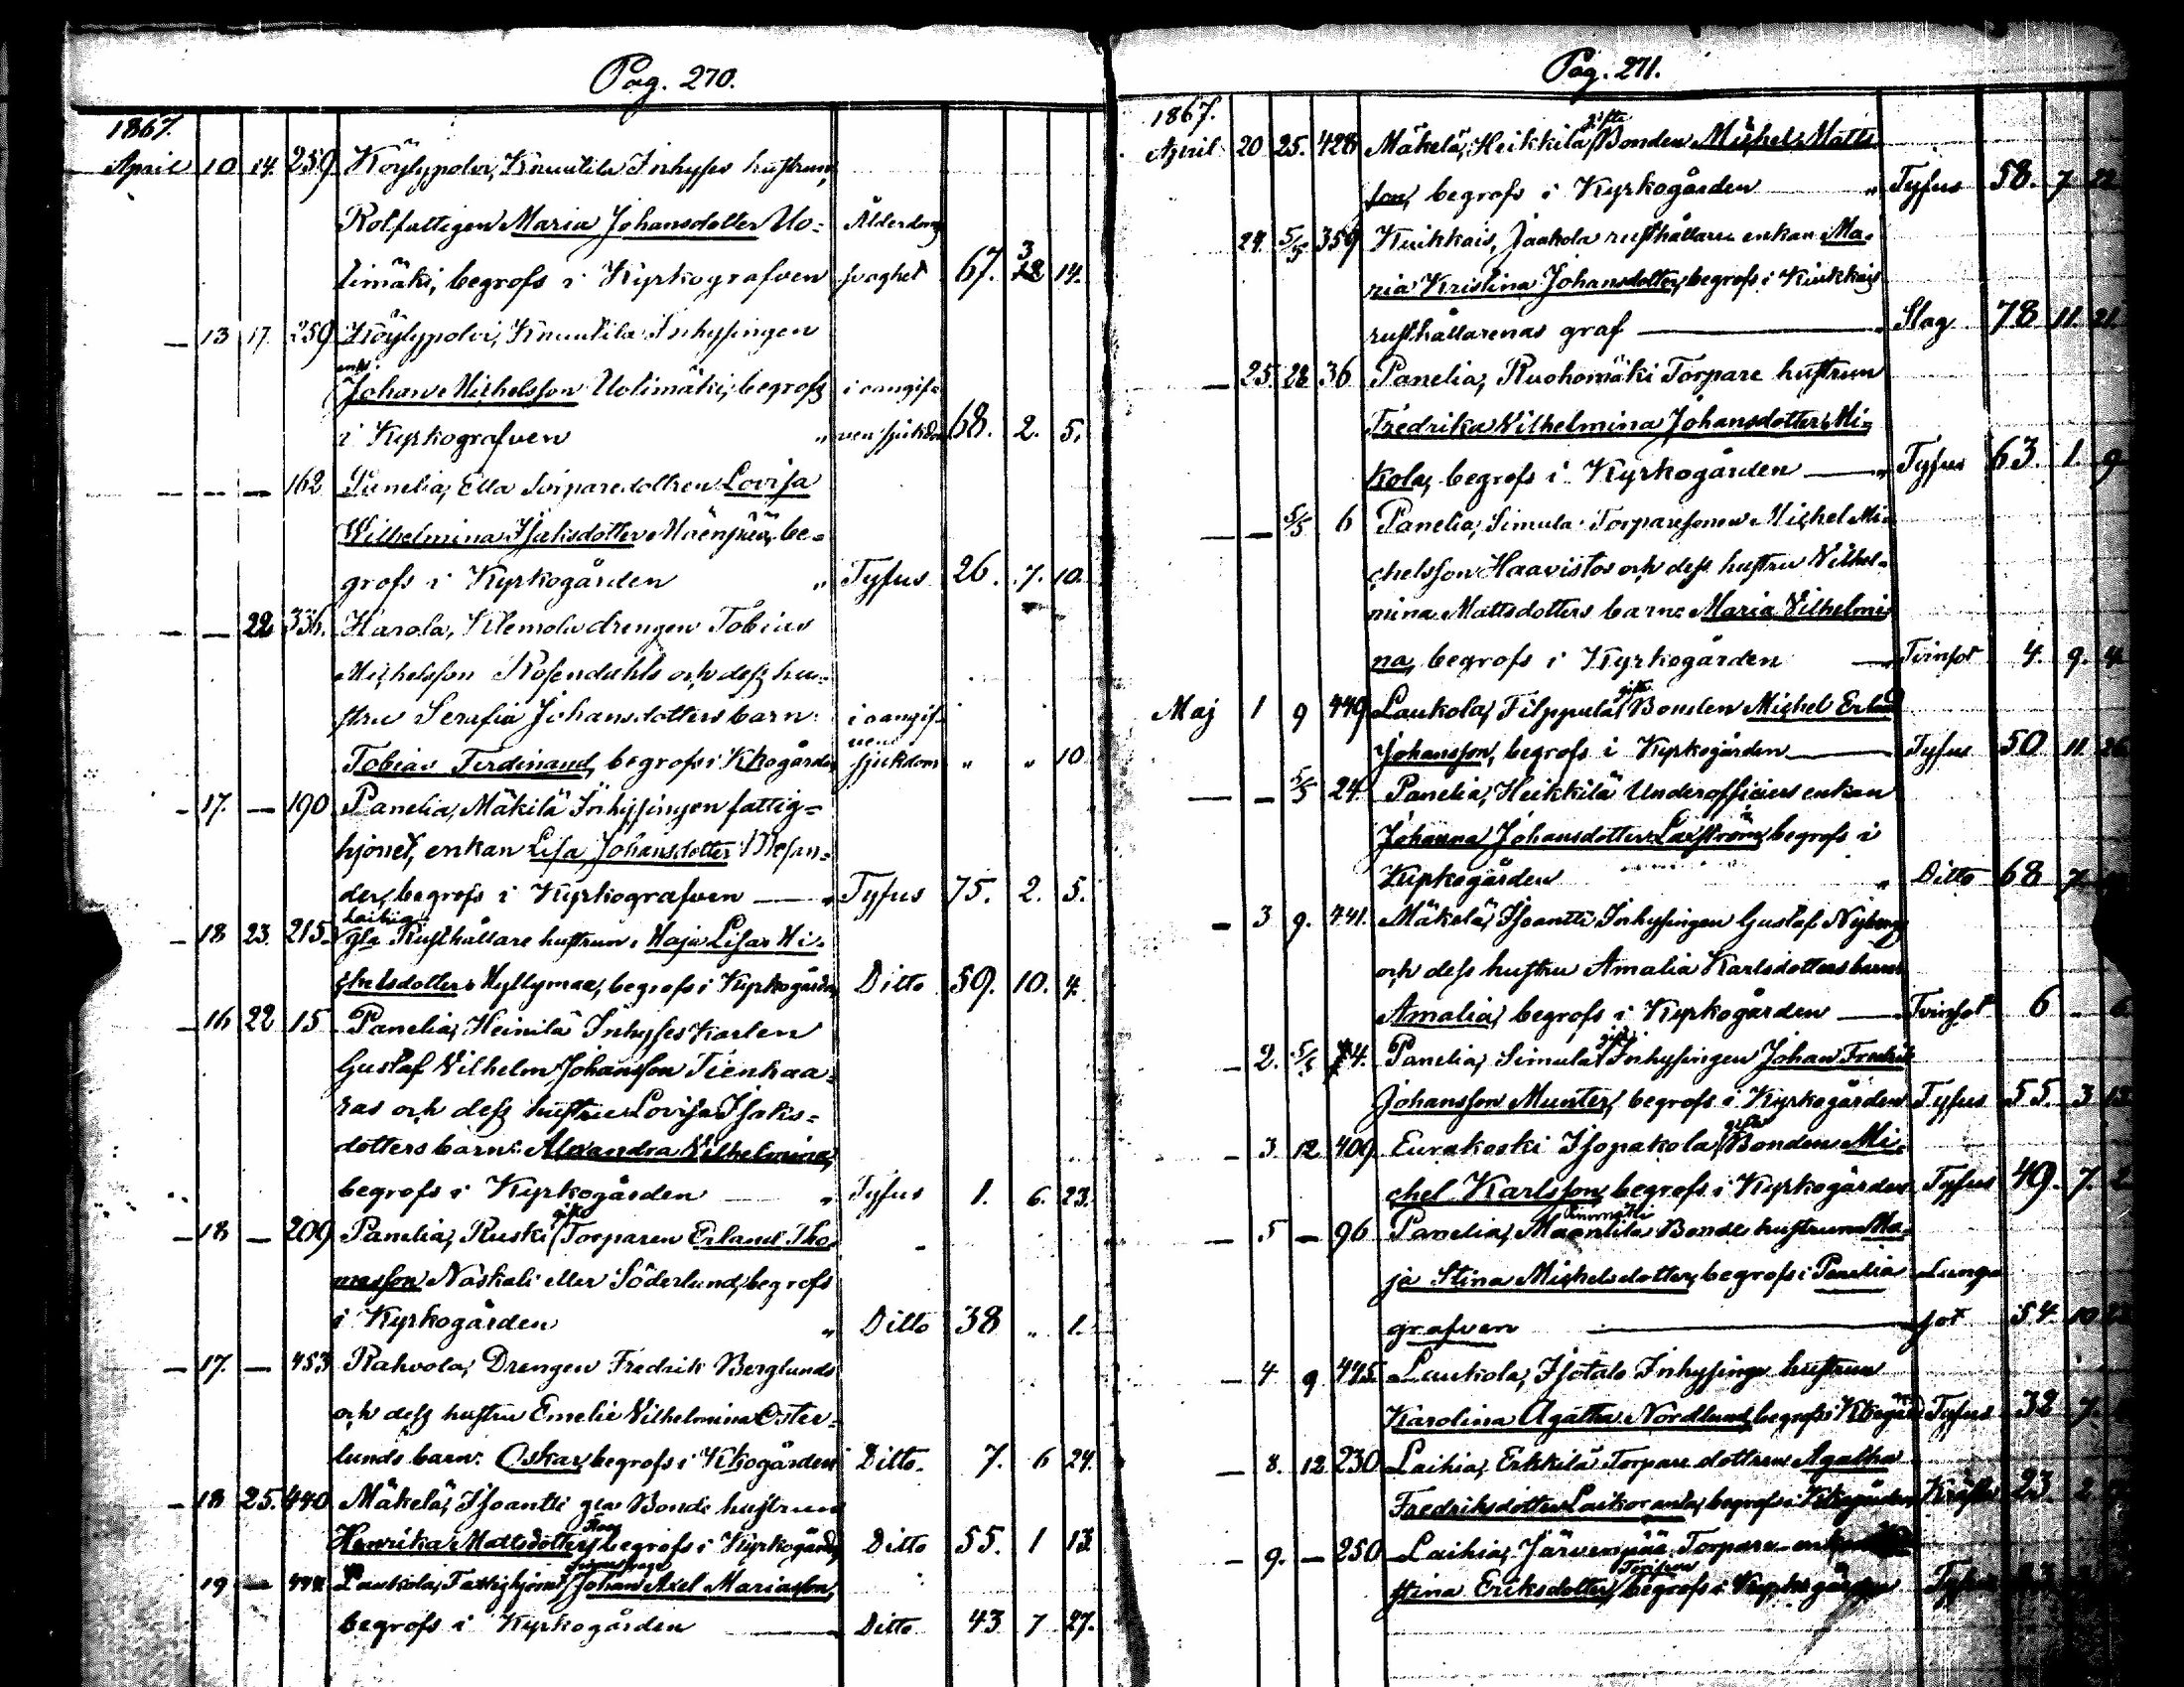 Pag. 270.
1867.
April 10 14. 259 Köylypolvi, Knuutila Inhyses hustrun,
Rotfattigen Maria Johansdotter Uo- Ålderdoms
timäki, begrofs i Kyrkografven svaghet 67. 3 14.
— 13 17. 259 Köylypolvi, Knuutila Inhysingen
enkl.
Johan Michelsson Uotimäki, begrofs i oangif-
i Kyrkografven " ven sjukdom 68. 2. 5.
— — — 162 Panelia, Ella Torparedottren Lovisa
Wilhelmina Isaksdotter Mäenpää, be-
grofs i Kyrkogården " Tyfus 26. 7. 10.
— — 22 336. Harola, Klemola drengen Tobias
Michelsson Rosendahls och dess hu-
stru Serafia Johansdotters barn: i oangif-
vena
Tobias Ferdinand, begrofs i Kkogården sjukdom " " 10
— 17. — 190 Panelia, Mäkilä Inhysingen fattig-
hjonet, enkan Lisa Johansdotter
der, begrofs i Kyrkografven — " Tyfus 75. 2. 5.
Laihia
— 18 23. 215. gla Rusthållare hustrun, Maja Lisa Mi-
chelsdotter Hyllymaa, begrofs i Kyrkogården Ditto 59. 10. 4.
— 16 22 15 Panelia, Heinilä Inhyses Karlen
Gustaf Vilhelm Johansson Tienhaa-
ras och dess hustru Lovisa Isaks-
dotters barn: Alexandra Vilhelmina,
begrofs i Kyrkogården — " Tyfus 1. 6. 23.
gifte
— 18 — 209 Panelia, Ruski Torparen Erland Tho-
masson Naskali eller Söderlund, begrofs
i Kyrkogården " Ditto 38 " 1.
— 17. — 453 Rahvola, Drengen Fredrik Berglunds
och dess hustru Emelie Vilhelmina Öster-
lunds barn: Oskar, begrofs i Kkogården Ditto. 7. 6 24.
— 18 25. 440 Mäkelä, Isoantti gla Bonde hustrun
Henrika Mattsdotter, begrofs i Kyrkogården Ditto 55. 1 13.
19 — Laukola, Fattighjonet Johan Axel Mariasson,
begrofs i Kyrkogården — Ditto 43 7 27.
Pag. 271.
1867.
gifte
April 20 25. 428 Mäkelä, Heikkilä Bonden Michel Matts-
son, begrofs i Kyrkogården — " Tyfus 58. 7 22
24. 5/5 359 Kiukkais, Jaakola rusthållare enkan Ma-
ria Kristina Johansdotter, begrofs i Kiukkais
rusthållarenas graf — Slag 78 11. 21.
— 25 28 36 Panelia, Ruohomäki Torpare hustrun
Fredrika Vilhelmina Johansdotter Mi-
kola, begrofs i Kyrkogården — " Tyfus 63. 1. 9
— — 5/5 6 Panelia, Simula Torparesonen Michel Mi-
chelsson Haavistos och dess hustru Vilhel-
mina Mattsdotters barn: Maria Vilhelmi-
na, begrofs i Kyrkogården — Tvinsot 4. 9. 4
gifte
Maj 1 9 449 Laukola, Filppula Bonden Michel Erland
Johansson, begrofs i Kyrkogården — Tyfus 50 11. 26
— — 5/5 24. Panelia, Heikkilä Underofficiers enkan
Johanna Johansdotter Laxström, begrofs i
Kyrkogården " Ditto 68 7
— 3 9. 441. Mäkelä, Isoantti Inhysingen Gustaf Nyberg
och dess hustru Amalia Karlsdotters barn
Amalia, begrofs i Kyrkogården — Tvinsot 6 " 6.
gifte
— 2. 5/5 4. Panelia, Simula Inhysingen Johan Fredrik
Johansson Munter, begrofs i Kyrkogården Tyfus 55. 3 12
gifte
— 3. 12 409 Eurakoski Isopakola Bonden Mi-
chel Karlsson, begrofs i Kyrkogården Tyfus 49. 7. 2
— 5 — 96 Panelia, Bonde hustrun Ma-
ja Stina Michelsdotter, begrofs i Panelia Lung-
grafven — sot 54. 10
— 4 9 445 Laukola, Isotalo Inhysings hustrun
Karolina Agatha Nordlund, begrofs i Kkogården Tyfus 32 7.
— 8. 12 230 Laihia, Erkkilä Torpare dottren Agatha
Fredriksdotter begrofs i Kkogården Kräfta 23. 2.
— 9. — 250 Laihia, Järvenpää Torpare enkan
stina Eriksdotter, begrofs i Kyrkogården Tyfus